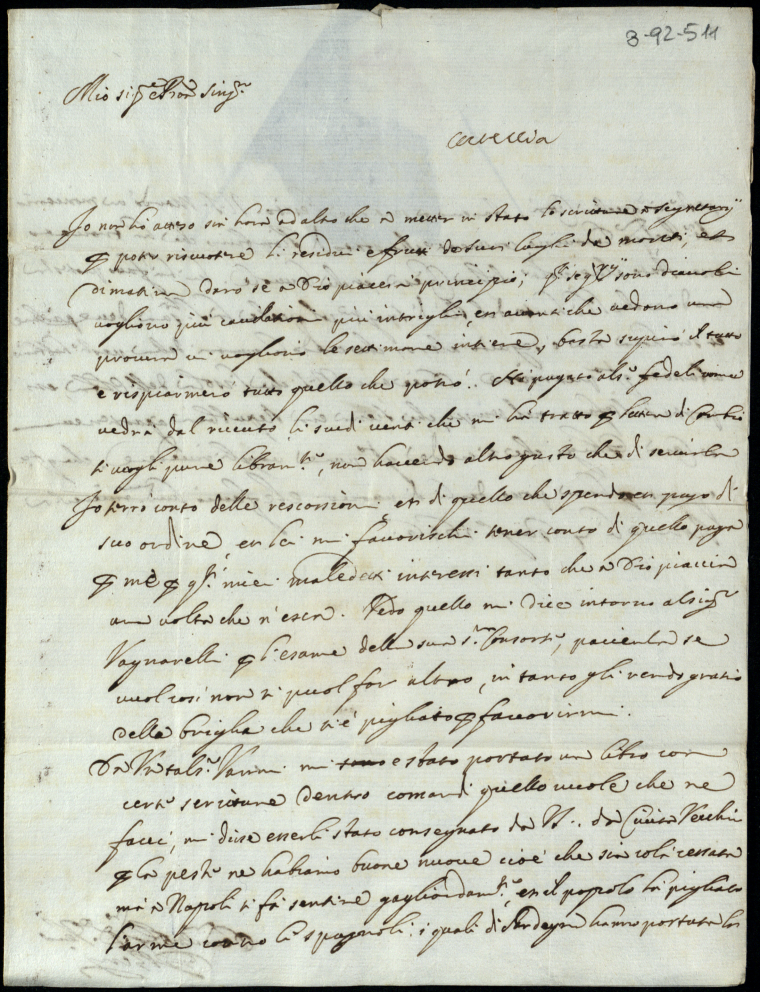 3-92-511
Mio sig.re e Pron sing.re
Io non ho atteso sin hora ad altro che a metter in stato le scritture
p poter riscuotere li residui e frutti de suoi luoghi de monti, et
dimatina darò se a Dio piacerà principio; sono diavoli
vogliono più più intrighi, et avanti che vedono una
vi vogliono le settimane intiere, basta il tutto
e risparmierò tutto quello che potrò. Ho pagato al s.r
vedrà dal riceuto li scudi venti che mi ha tratto p lettera di Cambio
pure non havendo altro gusto che di servirla
Io terrò conto delle rescossioni, et di quello che spenderò di
suo ordine, et lei mi favorischi tener conto di quello paga
p me p q.ti miei maledetti interessi tanto che a Dio piaccia
una volta che n'esca. Vedo quello mi dice intorno al sig.r
Vagnarelli p l'esame della sua s.ra Consorte, pacienza se
vuol così non si puol far altro, in tanto gli rendo gratie
della briga che si è pigliato p favorirmi.
Da un tal s.r Vanni mi è stato portato un libro con
certe scritture dentro comandi quello vuole che ne
facci, mi disse esserli stato consegnato da VS. da Civita Vecchia
p la peste ne habbiamo buone nuove cioè che sia colà cessata
ma a Napoli si fa sentire gagliardam.te, et il popolo ha pigliato
l'arme contro li spagnoli, i quali di Sardegna hanno portata la